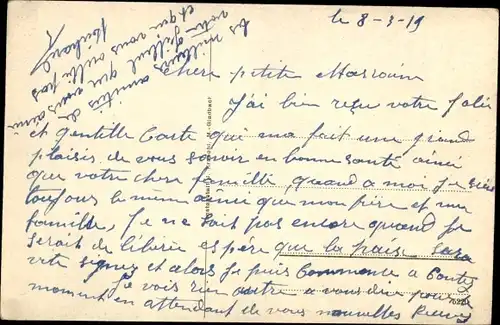 le 8-3-19
Chere petite Marraine
J'ai bien reçu votre Jolie
et gentille Carte qui ma fait une grand
plaisir de vous savoir en bonne santé ainsi
que votre chere famille, quand a moi Je suis
toujours le meme ainsi que mon père et ma
famille, Je ne sait pas encore quand Je
serait de liberer espère que la paise sera
vite signez et alors Je puis Commence a Conter
Je vois rien autre a vous dire pour le
moment en attendant de vous nouvelles Recevez
les meilleurs amitiés de
votre filleul que vous aime
et qui vous oublie pas